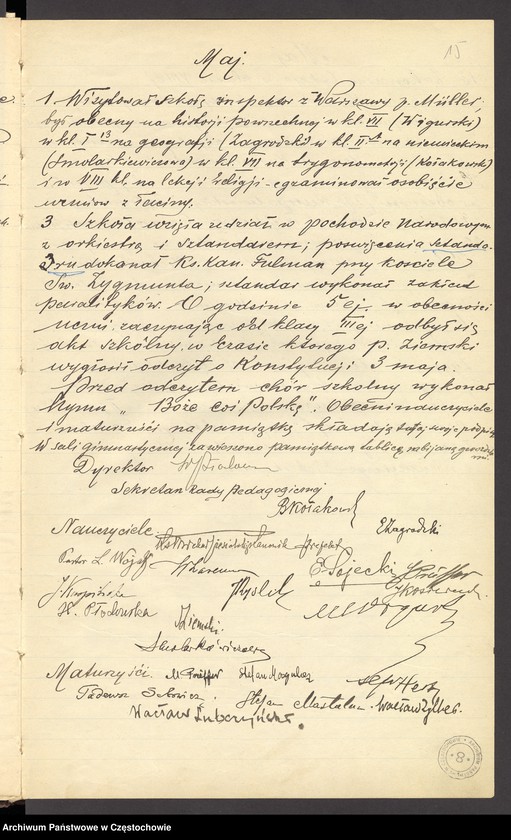 15
Maj.
1. Wizytował szkołę inspektor z Warszawy p. Müller,
był obecny na historji powszechnej w kl. VII (Wigurski)
w kl. I na geografji (Zagrodzki) w kl. II na niemieckim
(Smolarkiewiczowa) w kl. VII na trygonometrji (Kołakowski)
i w VIII kl. na lekcji Religji - egzaminował osobiście
uczniów z łaciny.
3 Szkoła wzięła udział w pochodzie Narodowym
z orkiestrą i sztandarem; poświęcenia sztanda-
ru dokonał Ks. Kan. Fulman przy kościele
Św. Zygmunta; sztandar wykonał zakład
O godzinie 5 ej. w obecności
uczni, zaczynając od klasy III ej odbył się
akt szkolny, w czasie którego p. Ziemski
wygłosił odczyt o Konstytucji 3 maja.
Przed odczytem chór szkolny wykonał
hymn „Boże coś Polskę". Obecni nauczyciele
i maturzyści na pamiątkę składają tutaj swoje podpisy
W sali gimnastycznej zawieszono pamiątkową tablicę
Dyrektor
Sekretarz Rady Pedagogicznej
B Kołakowski
Nauczyciele. E Zagrodzki
Pastor L. Wojak E. Sojecki
H. Płodowska
Ziemski
Smolarkiewiczowa
Maturzyści. Stefan
Tadeusz Stefan Wacław
Wacław
8
Archiwum Państwowe w Częstochowie